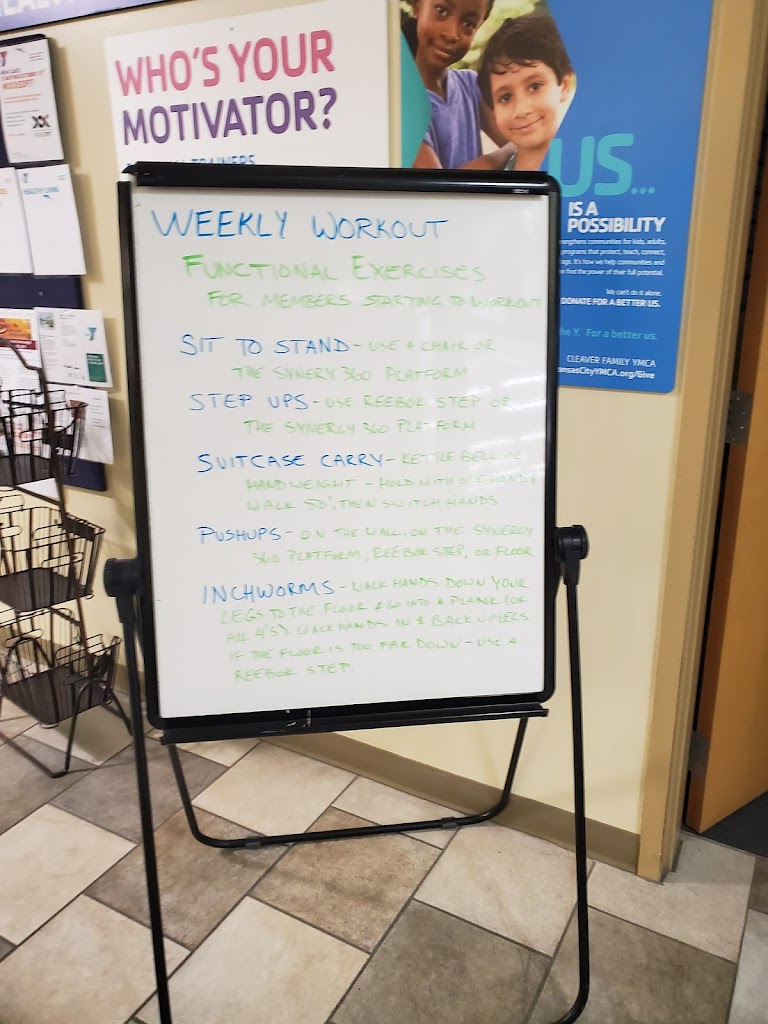 WHO'S YOUR
MOTIVATOR?
TRAINERS
HEALTHY LIVING
US...
IS A
POSSIBILITY
We can't do it alone.
DONATE FOR A BETTER US.
the Y. For a better us.
CLEAVER FAMILY YMCA
ansasCityYMCA.org/Give
WEEKLY WORKOUT
FUNCTIONAL EXERCISES
FOR MEMBERS STARTING TO WORKOUT
SIT TO STAND - USE A CHAIR OR
THE SYNERY 360 PLATFORM
STEP UPS - USE REEBOK STEP OR
THE SYNERGY 360 PLATFORM
SUITCASE CARRY - KETTLE BELL OR
HANDWEIGHT - HOLD WITH ONE HAND &
WALK 50', THEN SWITCH HANDS
PUSHUPS - ON THE WALL, ON THE SYNERGY
360 PLATFORM, REEBOK STEP, OR FLOOR
INCHWORMS - WALK HANDS DOWN YOUR
LEGS TO THE FLOOR & GO INTO A PLANK (OR
ALL 4'S). WALK HANDS IN & BACK UP LEGS.
IF THE FLOOR IS TOO FAR DOWN - USE A
REEBOK STEP.